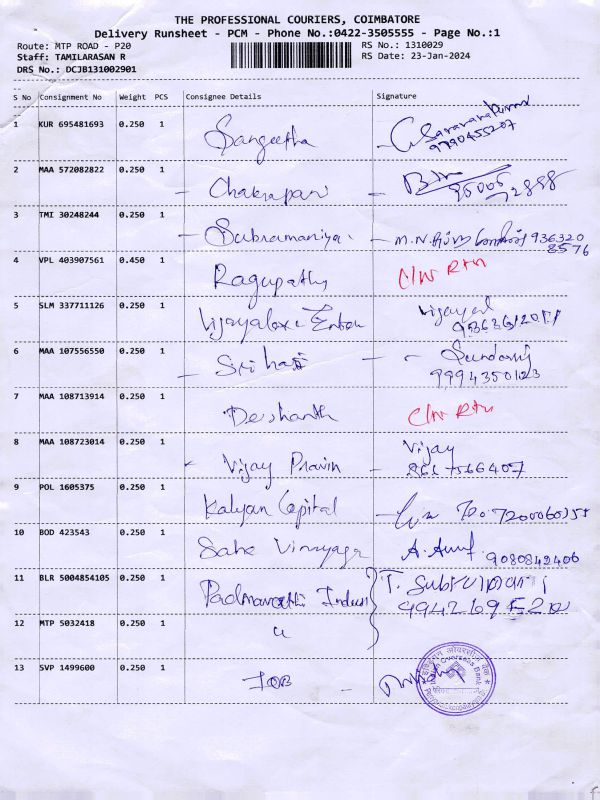 THE PROFESSIONAL COURIERS, COIMBATORE
Delivery Runsheet - PCM - Phone No.:0422-3505555 - Page No.:1
Route: MTP ROAD - P20 RS No.: 1310029
Staff: TAMILARASAN R RS Date: 23-Jan-2024
DRS No.: DCJB131002901
S No Consignment No Weight PCS Consignee Details Signature
1 KUR 695481693 0.250 1 Sangeetha Saravanakumar
9790455207
2 MAA 572082822 0.250 1 Chakrapani
3 TMI 30248244 0.250 1 Subramaniya M.N. 936320
8576
4 VPL 403907561 0.450 1 Ragupathy C/N Rtn
5 SLM 337711126 0.250 1 Vijayalaxi
6 MAA 107556550 0.250 1 Srihari Sundar
9994350123
7 MAA 108713914 0.250 1 Deshanth C/N Rtn
8 MAA 108723014 0.250 1 Vijay Pravin Vijay
9 POL 1605375 0.250 1 Kalyan Capital
10 BOD 423543 0.250 1 Sake Vinayaga A. 9080842406
11 BLR 5004854105 0.250 1 Padmavathi T.
12 MTP 5032418 0.250 1 "
13 SVP 1499600 0.250 1 IOB
Overseas Bank